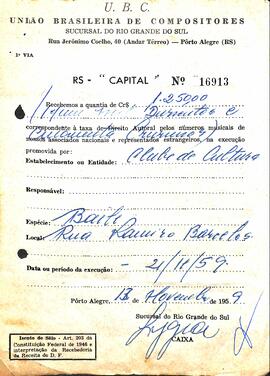 U. B. C.
UNIÃO BRASILEIRA DE COMPOSITORES
SUCURSAL DO RIO GRANDE DO SUL
Rua Jerônimo Coelho, 40 (Andar Térreo) — Pôrto Alegre (RS)
1ª VIA
RS - "CAPITAL" Nº 16913
Recebemos a quantia de Cr$ 1.250,00
duzentos e
cincoenta (cruzeiros)
correspondente à taxa de Direito Autoral pelos números musicais de
nossos associados nacionais e representados estrangeiros, na execução
promovida por:
Estabelecimento ou Entidade: Clube de Cultura
Responsável:
Espécie: Baile
Local: Rua Ramiro Barcelos
Data ou período da execução: — 21/11/59.
Pôrto Alegre, 13 de Novembro de 1959.
Sucursal do Rio Grande do Sul
CAIXA
Isento de Sêlo - Art. 203 da
Constituição Federal de 1946 e
interpretação da Recebedoria
da Receita do D. F.